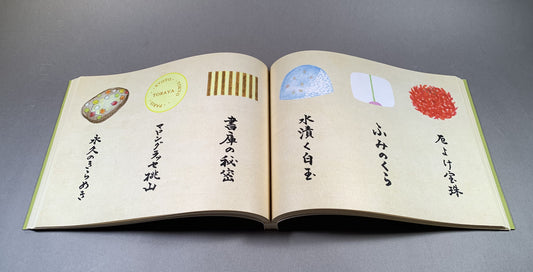 厄よけ宝珠
ふみのくら
水漬く白玉
書庫の秘密
KYOTO · TOKYO · PARIS ·
TORAYA
マロングラッセ桃山
永久のきらめき